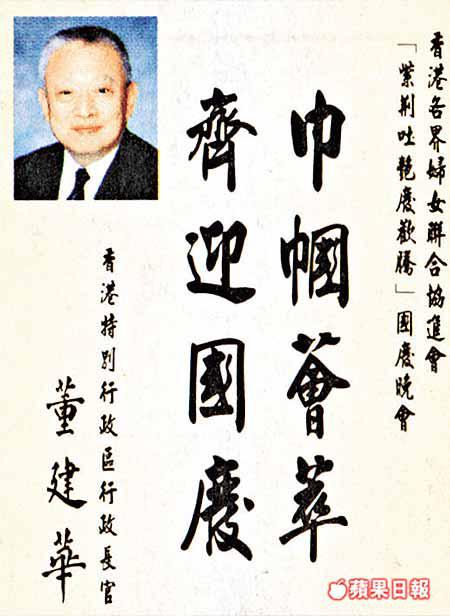 香港各界婦女聯合協進會
「紫荆吐艷慶歡騰」國慶晚會
巾幗薈萃
齊迎國慶
香港特別行政區行政長官
董建華
蘋果日報